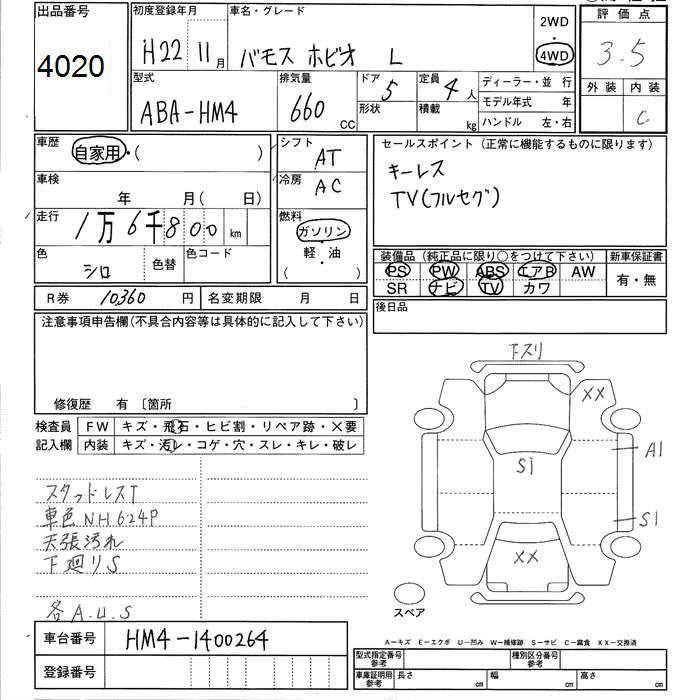 出品番号
4020
初度登録年月
H22 11月
車名・グレード
バモス ホビオ L
2WD
4WD
評価点
3.5
型式
ABA-HM4
排気量
660 CC
ドア
5
形状
定員
4人
積載
kg
ディーラー・並行
モデル年式 年
ハンドル 左・右
外装 内装
C
車歴
自家用・( )
車検
年 月( 日)
走行
1万6千800 km
色
シロ
色替
色コード
シフト
AT
冷房
AC
燃料
ガソリン
軽・油
( )
セールスポイント(正常に機能するものに限ります)
キーレス
TV(フルセグ)
装備品(純正品に限り○をつけて下さい)
新車保証書
PS PW ABS エアB AW
SR ナビ TV カワ
有・無
R券 10,360 円
名変期限 月 日
後日品
注意事項申告欄(不具合内容等は具体的に記入して下さい)
修復歴 有 〔箇所 〕
検査員
記入欄
FW キズ・飛石・ヒビ割・リペア跡・×要
内装 キズ・汚レ・コゲ・穴・スレ・キレ・破レ
スタッドレスT
車色NH624P
天張汚れ
下廻りS
各A.U.S
下スリ
XX
A1
S1
S1
XX
スペア
A-キズ E-エクボ U-凹み W-補修跡 S-サビ C-腐食 XX-交換済
車台番号
HM4-1400264
登録番号
型式指定番号
参考
種別区分番号
参考
車庫証明用
参考
長さ cm
幅 cm
高さ cm